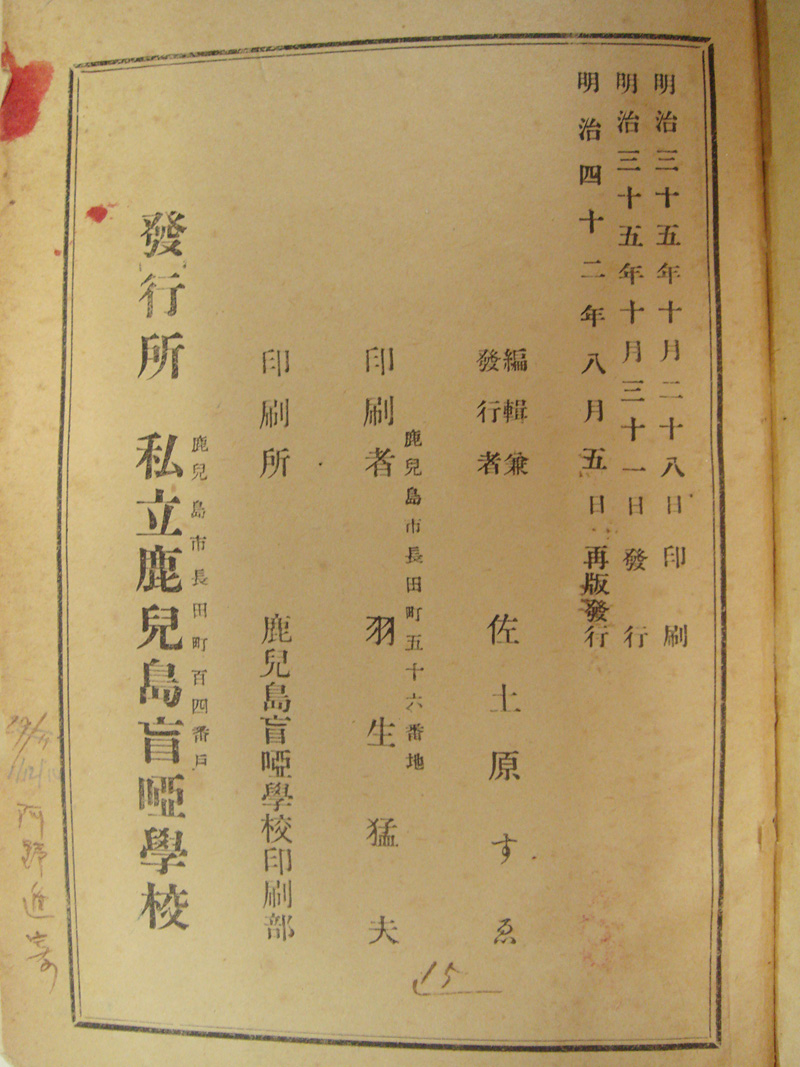 明治三十五年十月二十八日印刷
明治三十五年十月三十一日發行
明治四十二年八月五日再版發行
編輯兼
發行者
佐土原すゑ
鹿兒島市長田町五十六番地
印刷者 羽生猛夫
印刷所 鹿兒島盲啞學校印刷部
鹿兒島市長田町百四番戸
發行所 私立鹿兒島盲啞學校
15